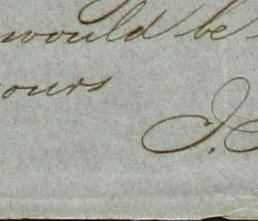 would be
ours
J.